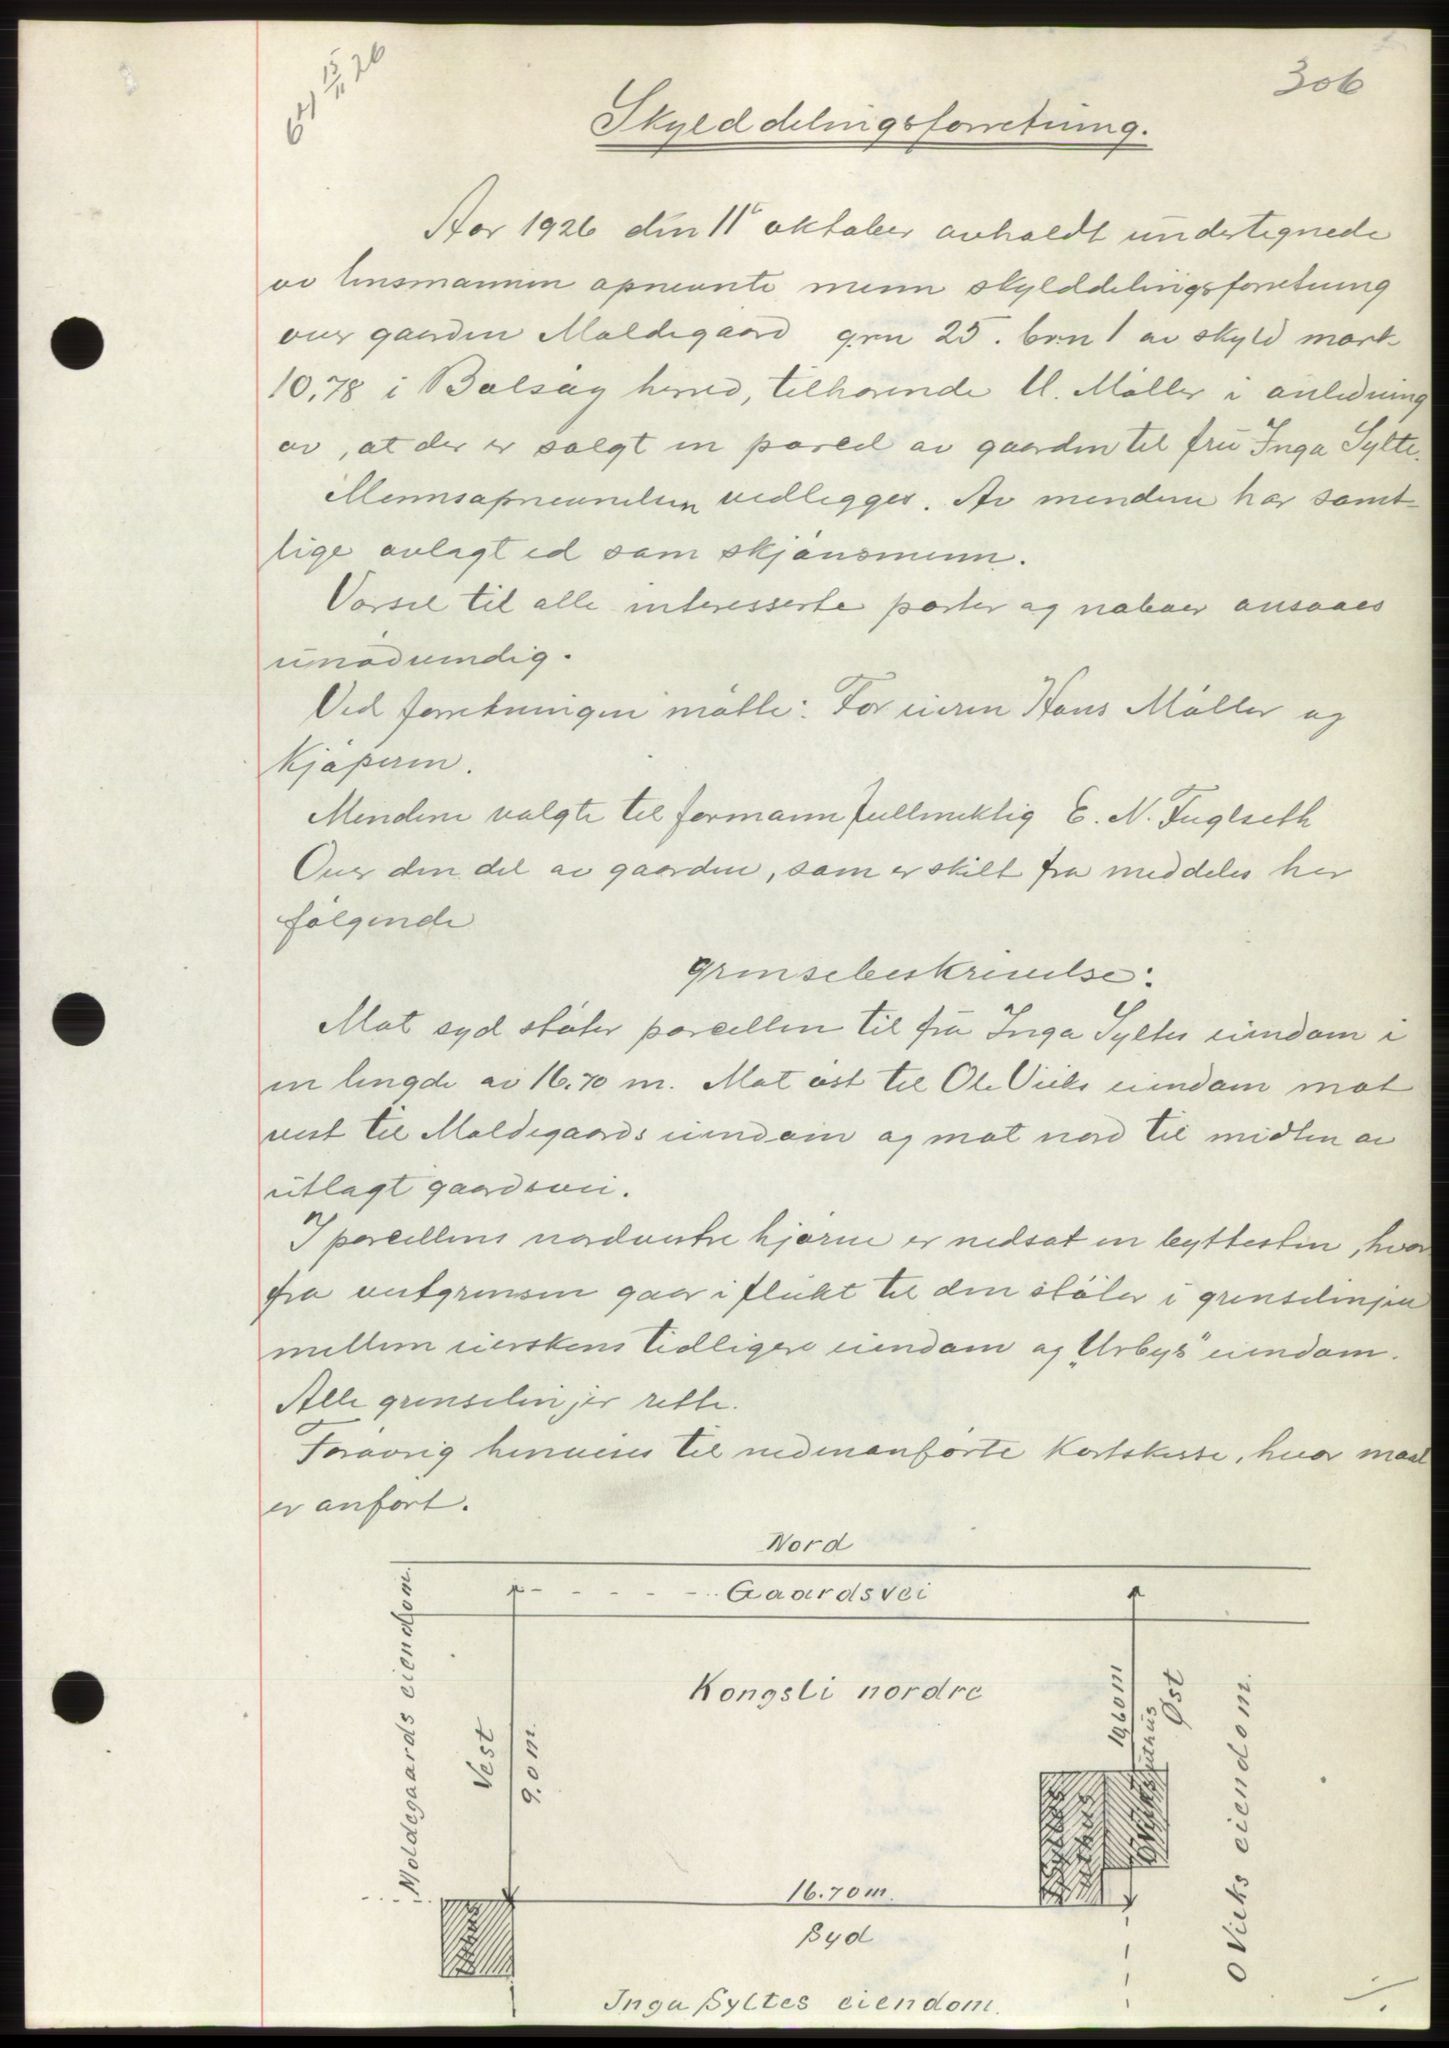 306
641 15/11 26
Skylddelingsforretning.
Aar 1926 den 11te oktober avholdt undertegnede
av lensmannen opnevnte menn skylddelingsforretning
over gaarden Moldegaard grn 25. brn 1 av skyld mark
10,78 i Bolsøy herred, tilhørende U. Møller i anledning
av, at der er solgt en parcel av gaarden til fru Inga Sylte.
Mennsopnevnelsen vedlegges. Av mendene har samt-
lige avlagt ed som skjønsmenn.
Varsel til alle interesserte parter og naboer ansaaes
unødvendig.
Ved forretningen møtte: For eieren Hans Møller og
kjøperen.
Mendene valgte til formann fullmektig E. N. Fuglseth
Over den del av gaarden, som er skilt fra meddeles her
følgende
grensebeskrivelse:
Mot syd støter parcellen til fru Inga Syltes eiendom i
en lengde av 16.70 m. Mot øst til Ole Vieks eiendom mot
vest til Moldegaards eiendom og mot nord til midten av
utlagt gaardsvei.
I parcellens nordvestre hjørne er nedsat en byttesten, hvor
fra vestgrensen gaar i flukt til den støter i grenselinjen
mellem eierskens tidligere eiendom og "Urbys" eiendom.
Alle grenselinjer rette.
Forøvrig henvises til nedenanførte kartskisse, hvor maal
er anført.
Nord
Gaardsvei
Moldegaards eiendom.
Vest
9.0 m.
Kongsli nordre
10,60 m
Øst
O Vieks eiendom.
16.70 m.
Syd
Inga Syltes eiendom.